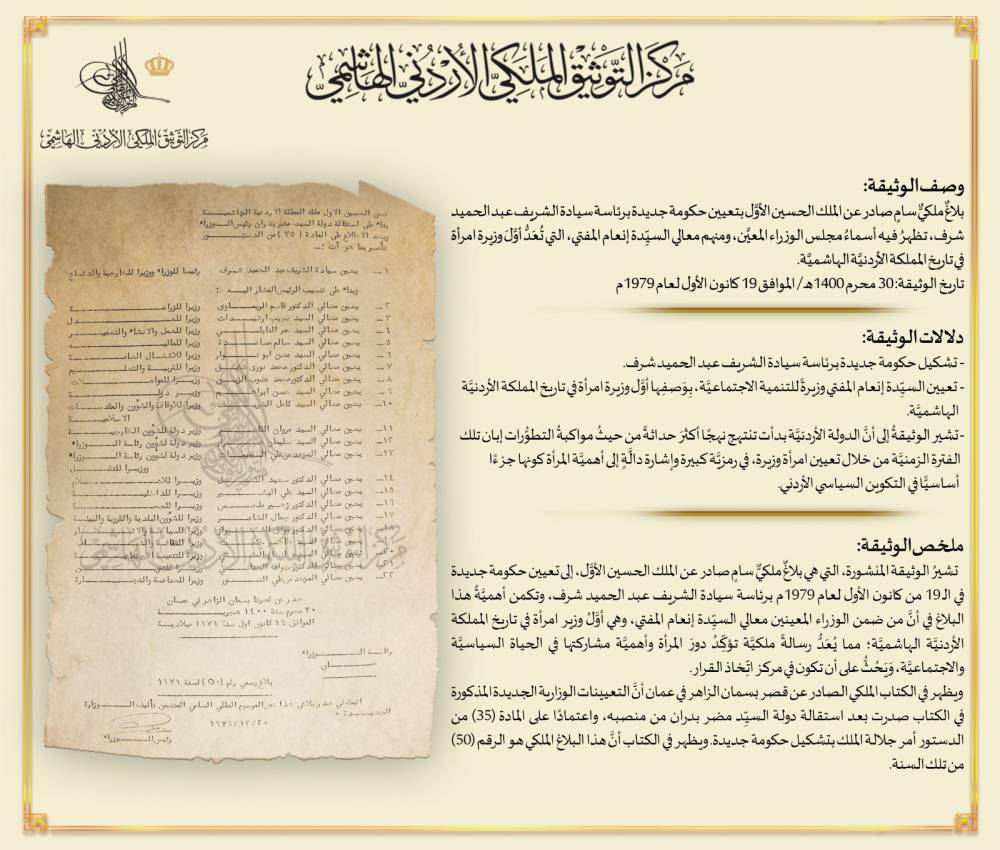 مَركَز التَّوثيق المَلَكيّ الأُردُنيّ الهَاشِميّ
مركز التوثيق الملكي الأردني الهاشمي
وصف الوثيقة:
بلاغٌ ملكيٌّ سامٍ صادر عن الملك الحسين الأوَّل بتعيين حكومة جديدة برئاسة سيادة الشريف عبد الحميد
شرف، تظهرُ فيه أسماءُ مجلس الوزراء المعيَّن، ومنهم معالي السيّدة إنعام المفتي، التي تُعَدُّ أوَّلَ وزيرة امرأة
في تاريخ المملكة الأردنيَّة الهاشميَّة.
تاريخ الوثيقة: 30 محرم 1400هـ/ الموافق 19 كانون الأول لعام 1979م
دلالات الوثيقة:
- تشكيل حكومة جديدة برئاسة سيادة الشريف عبد الحميد شرف.
- تعيين السيّدة إنعام المفتي وزيرةً للتنمية الاجتماعيَّة، بوَصفِها أوَّل وزيرة امرأة في تاريخ المملكة الأردنيَّة
الهاشميَّة.
- تشير الوثيقةُ إلى أنَّ الدولة الأردنيَّة بدأت تنتهج نهجًا أكثرَ حداثةً من حيثُ مواكبةُ التطوُّرات إبان تلك
الفترة الزمنيَّة من خلال تعيين امرأة وزيرة، في رمزيَّة كبيرة وإشارة دالَّةٍ إلى أهميَّة المرأة كونها جزءًا
أساسيًّا في التكوين السياسي الأردني.
ملخص الوثيقة:
تشيرُ الوثيقة المنشورة، التي هي بلاغٌ ملكيٌّ سامٍ صادر عن الملك الحسين الأوَّل، إلى تعيين حكومة جديدة
في الـ 19 من كانون الأول لعام 1979م برئاسة سيادة الشريف عبد الحميد شرف، وتكمن أهميَّةُ هذا
البلاغ في أنَّ من ضمن الوزراء المعينين معالي السيّدة إنعام المفتي، وهي أوَّلُ وزير امرأة في تاريخ المملكة
الأردنيَّة الهاشميَّة؛ مما يُعَدُّ رسالةً ملكيَّة تؤكِّدُ دورَ المرأة وأهميَّة مشاركتها في الحياة السياسيَّة
والاجتماعيَّة، وَيَحُثُّ على أن تكون في مركز اتّخاذ القرار.
ويظهر في الكتاب الملكي الصادر عن قصر بسمان الزاهر في عمان أنَّ التعيينات الوزارية الجديدة المذكورة
في الكتاب صدرت بعد استقالة دولة السيّد مضر بدران من منصبه، واعتمادًا على المادة (35) من
الدستور أمر جلالة الملك بتشكيل حكومة جديدة. ويظهر في الكتاب أنَّ هذا البلاغ الملكي هو الرقم (50)
من تلك السنة.
نحن الحسين الاول ملك المملكة الاردنية الهاشمية
بناء على استقالة دولة السيد مضر بدران رئيس الوزراء
وبعد الاطلاع على المادة (٣٥) من الدستور
نأمر بما هو آت :-
١- يعين سيادة الشريف عبد الحميد شرف رئيسا للوزراء ووزيرا للخارجية والدفاع
وبناء على تنسيب الرئيس المشار اليه :
٢- يعين معالي الدكتور قاسم الريماوي وزيرا للزراعة
٣- يعين معالي السيد نجيب ارشيدات وزيرا للعدل
٤- يعين معالي السيد عمر النابلسي وزيرا للعمل والانشاء والتعمير
٥- يعين معالي السيد سالم مساعدة وزيرا للمالية
٦- يعين معالي السيد محسن ابو نوار وزيرا للاشغال العامة
٧- يعين معالي الدكتور محمد نوري شفيق وزيرا للتربية والتعليم
٨- يعين معالي الدكتور محمد عضوب الزبن وزيرا للمواصلات
٩- يعين معالي السيد حسن ابراهيم وزير دولة
١٠- يعين معالي السيد كامل الشريف وزيرا للاوقاف والشؤون والمقدسات
الاسلامية
١١- يعين معالي السيد مروان وزير دولة للشؤون الخارجية
١٢- يعين معالي السيد سليمان وزير دولة لشؤون رئاسة الوزراء
١٣- يعين معالي المهندس علي وزير دولة لشؤون رئاسة الوزراء
ووزيرا للنقل
١٤- يعين معالي الدكتور سعيد وزيرا للاعلام
١٥- يعين معالي السيد علي البشير وزيرا للداخلية
١٦- يعين معالي الدكتور زهير ملحس وزيرا للصحة
١٧- يعين معالي الدكتور جمال الشاعر وزيرا للشؤون البلدية والقروية والبيئة
وزيرا للتنمية الاجتماعية
وزيرا للتموين
٢٢- يعين معالي المهندس علي النسور وزيرا للصناعة والتجارة
صدر عن قصرنا بسمان الزاهر في عمان
٣٠ محرم سنة ١٤٠٠ هجرية
الموافق ١٩ كانون اول سنة ١٩٧٩ ميلادية
رئاسة الوزراء
عمان
بلاغ رسمي رقم (٥٠) لسنة ١٩٧٩
المرسوم الملكي السامي المتضمن تأليف الوزارة
الجديدة .
١٩٧٩/١٢/٢٠
رئيس الوزراء